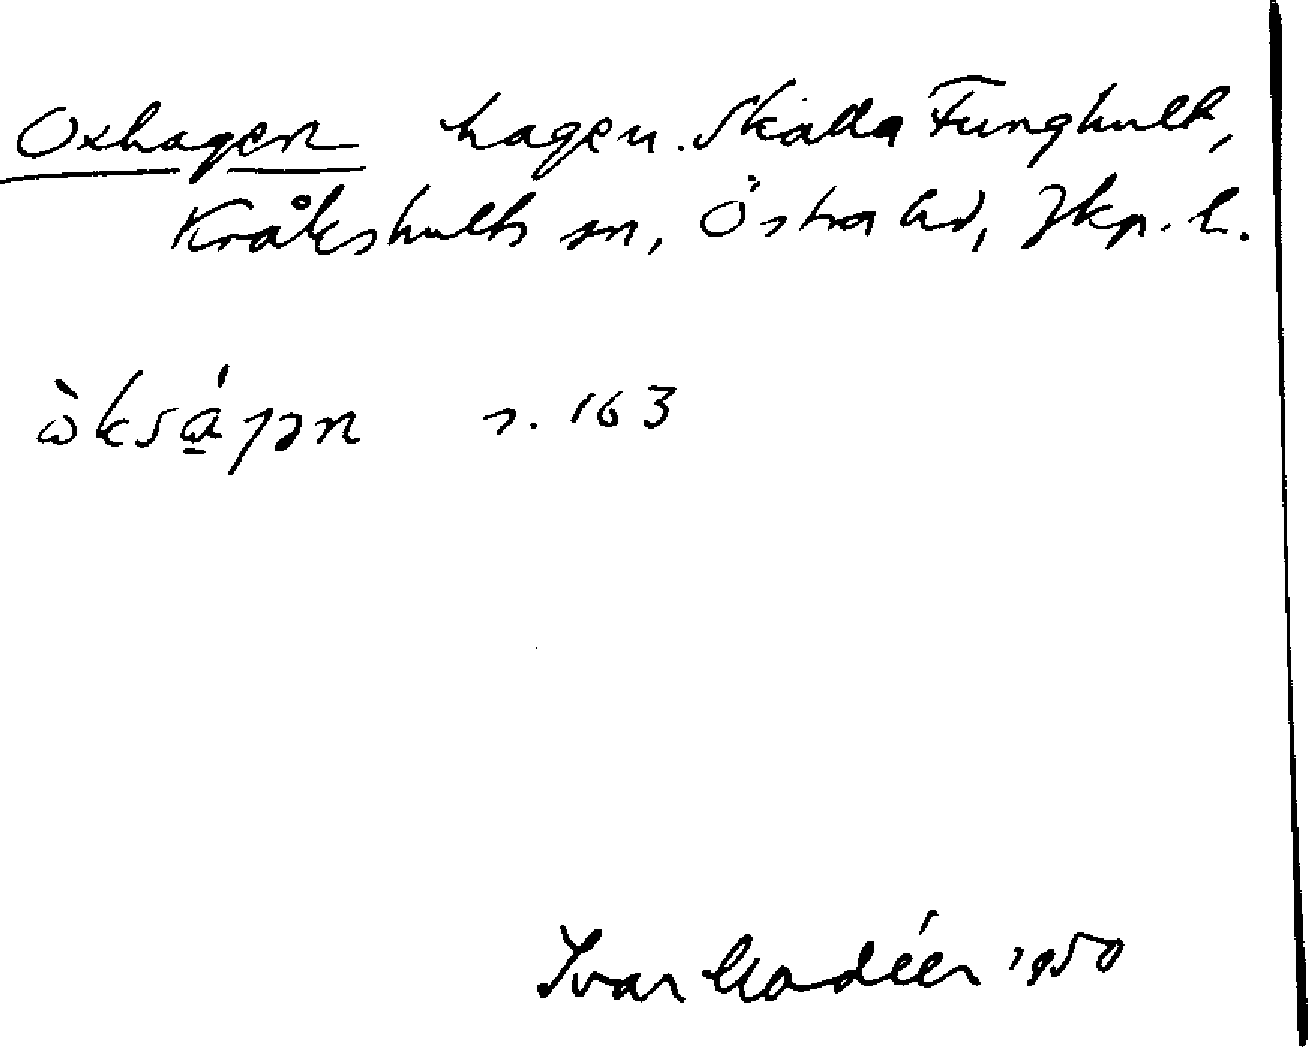 Oxhagen hagen. Skälla Funghult,
Kråkshults sn, Östra hd, Jkp. l.
ὼksά̠ɡən s. 163
Ivar Modéer 1950